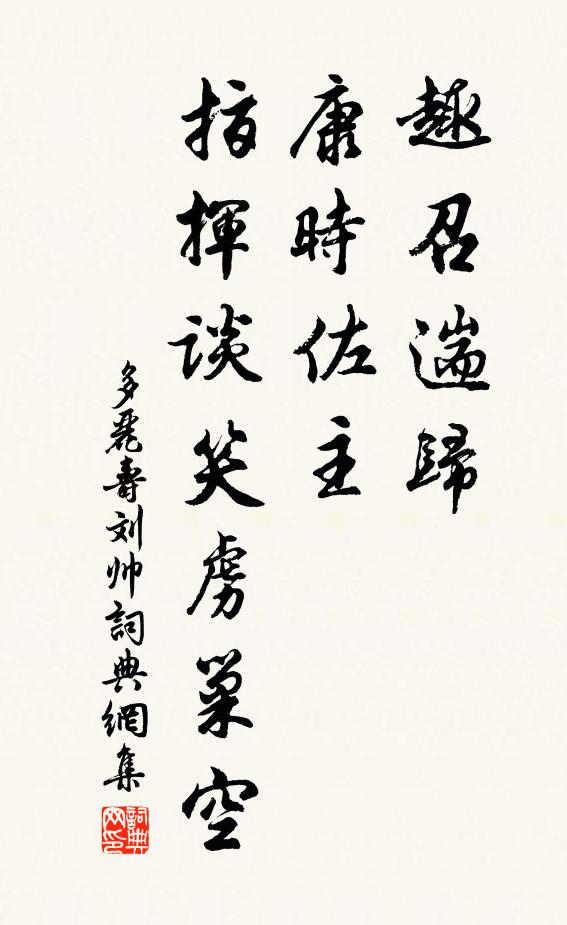 趣召遄歸
康時佐主
指揮談笑虜巢空
多麗壽刘帅詞典網集
詞典网印